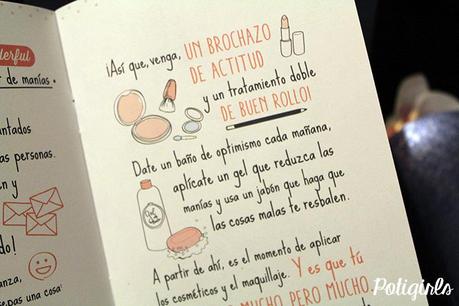 derful
r de manías.
ntados
s personas.
n y
do!
anza,
epas una cosa
¡Así que, venga, UN BROCHAZO
DE ACTITUD
y un tratamiento doble
DE BUEN ROLLO!
Date un baño de optimismo cada mañana,
aplícate un gel que reduzca las
manías y usa un jabón que haga que
las cosas malas te resbalen.
A partir de ahí, es el momento de aplicar
los cosméticos y el maquillaje. Y es que tú
MUCHO PERO MUCHO
Potigirls